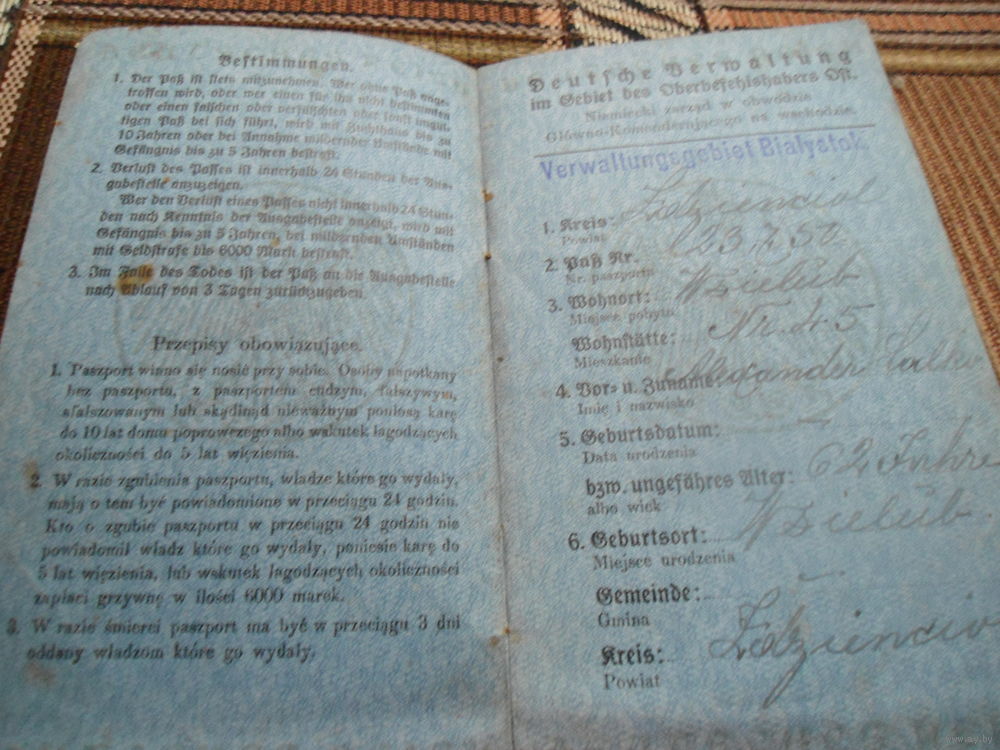 Bestimmungen.
1. Der Paß ist stets mitzunehmen. Wer ohne Paß ange-
troffen wird, oder wer einen für ihn nicht bestimmten
oder einen falschen oder verfälschten oder sonst ungül-
tigen Paß bei sich führt, wird mit Zuchthaus bis zu
10 Jahren oder bei Annahme mildernder Umstände mit
Gefängnis bis zu 5 Jahren bestraft.
2. Verlust des Passes ist innerhalb 24 Stunden der Aus-
gabestelle anzuzeigen.
Wer den Verlust eines Passes nicht innerhalb 24 Stun-
den nach Kenntnis der Ausgabestelle anzeigt, wird mit
Gefängnis bis zu 5 Jahren, bei mildernden Umständen
mit Geldstrafe bis 6000 Mark bestraft.
3. Im Falle des Todes ist der Paß an die Ausgabestelle
nach Ablauf von 3 Tagen zurückzugeben.
Przepisy obowiązujące.
1. Paszport winno się nosić przy sobie. Osoby napotkany
bez paszportu, z paszportem cudzym, fałszywym,
sfałszowanym lub skądinąd nieważnym poniosą karę
do 10 lat domu poprawczego albo wskutek łagodzących
okoliczności do 5 lat więzienia.
2. W razie zgubienia paszportu, władze które go wydały,
mają o tem być powiadomione w przeciągu 24 godzin.
Kto o zgubie paszportu w przeciągu 24 godzin nie
powiadomił władz które go wydały, poniesie karę do
5 lat więzienia, lub wskutek łagodzących okoliczności
zapłaci grzywnę w ilości 6000 marek.
3. W razie śmierci paszport ma być w przeciągu 3 dni
oddany władzom które go wydały.
Deutsche Verwaltung
im Gebiet des Oberbefehlshabers Ost.
Niemiecki zarząd w obwodzie
Główno-Komenderującego na wschodzie.
Verwaltungsgebiet Bialystok.
1. Kreis: Zdzienciol
Powiat
2. Paß Nr.
Nr. paszportu
3. Wohnort: Wsielub
Miejsce pobytu
Wohnstätte: Nr. 5
Mieszkanie
4. Vor- u. Zuname: Alexander
Imię i nazwisko
5. Geburtsdatum:
Data urodzenia
bzw. ungefähres Alter: 62 Jahre
albo wiek
6. Geburtsort: Wsielub.
Miejsce urodzenia
Gemeinde:
Gmina
Kreis: Zdzienciol
Powiat
www.ay.by